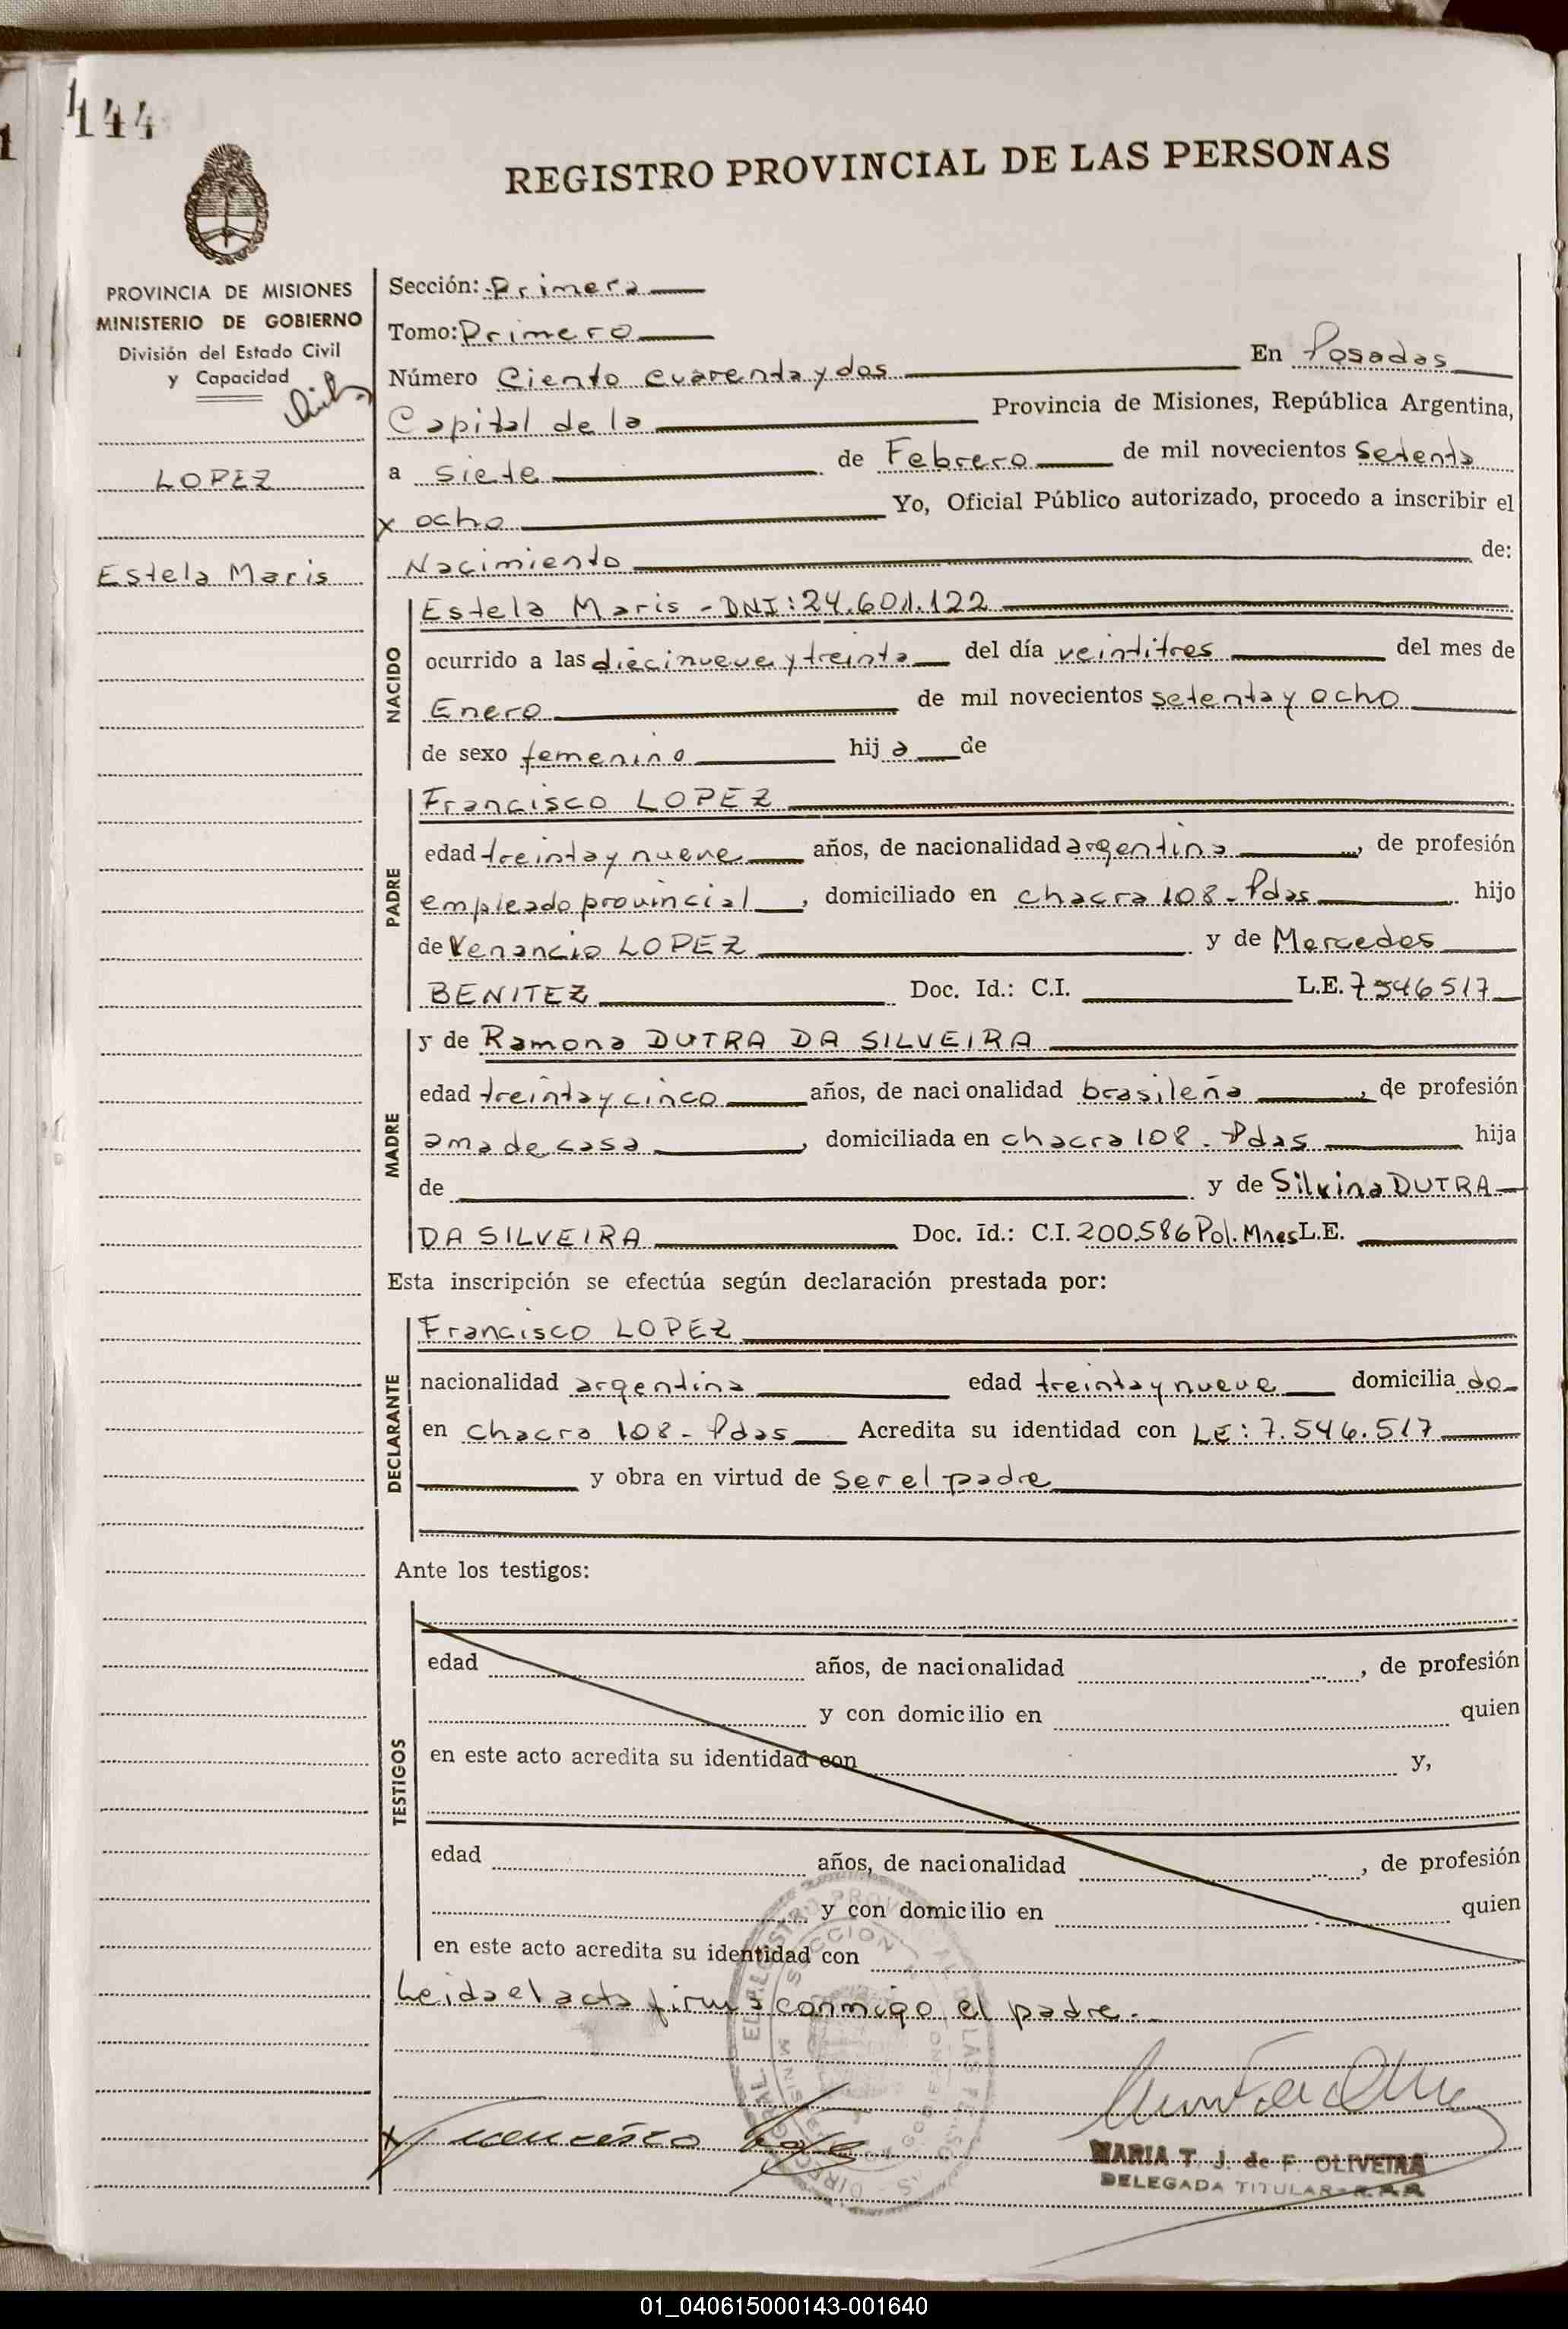 144
REGISTRO PROVINCIAL DE LAS PERSONAS
PROVINCIA DE MISIONES
MINISTERIO DE GOBIERNO
División del Estado Civil
y Capacidad
LOPEZ
Estela Maris
Sección: Primera
Tomo: Primero
Número Ciento cuarenta y dos En Posadas
Capital de la Provincia de Misiones, República Argentina,
a siete de Febrero de mil novecientos setenta
y ocho Yo, Oficial Público autorizado, procedo a inscribir el
Nacimiento de:
NACIDO
Estela Maris - DNI: 24.601.122
ocurrido a las diecinueve y treinta del día veintitres del mes de
Enero de mil novecientos setenta y ocho
de sexo femenino hija de
PADRE
Francisco LOPEZ
edad treinta y nueve años, de nacionalidad argentina, de profesión
empleado provincial, domiciliado en chacra 108 - Pdas hijo
de Venancio LOPEZ y de Mercedes
BENITEZ Doc. Id.: C.I. L.E. 7546517
MADRE
y de Ramona DUTRA DA SILVEIRA
edad treinta y cinco años, de nacionalidad brasileña, de profesión
ama de casa, domiciliada en chacra 108 - Pdas hija
de y de Silvina DUTRA
DA SILVEIRA Doc. Id.: C.I. 200.586 Pol. Mnes L.E.
Esta inscripción se efectúa según declaración prestada por:
DECLARANTE
Francisco LOPEZ
nacionalidad argentina edad treinta y nueve domiciliado
en chacra 108 - Pdas Acredita su identidad con LE: 7.546.517
y obra en virtud de ser el padre
Ante los testigos:
TESTIGOS
edad años, de nacionalidad , de profesión
y con domicilio en quien
en este acto acredita su identidad con y,
edad años, de nacionalidad , de profesión
y con domicilio en quien
en este acto acredita su identidad con
Leida el acta firma conmigo el padre.
Francisco Lopez
MARIA T. J. de F. OLIVEIRA
DELEGADA TITULAR
01_040615000143-001640